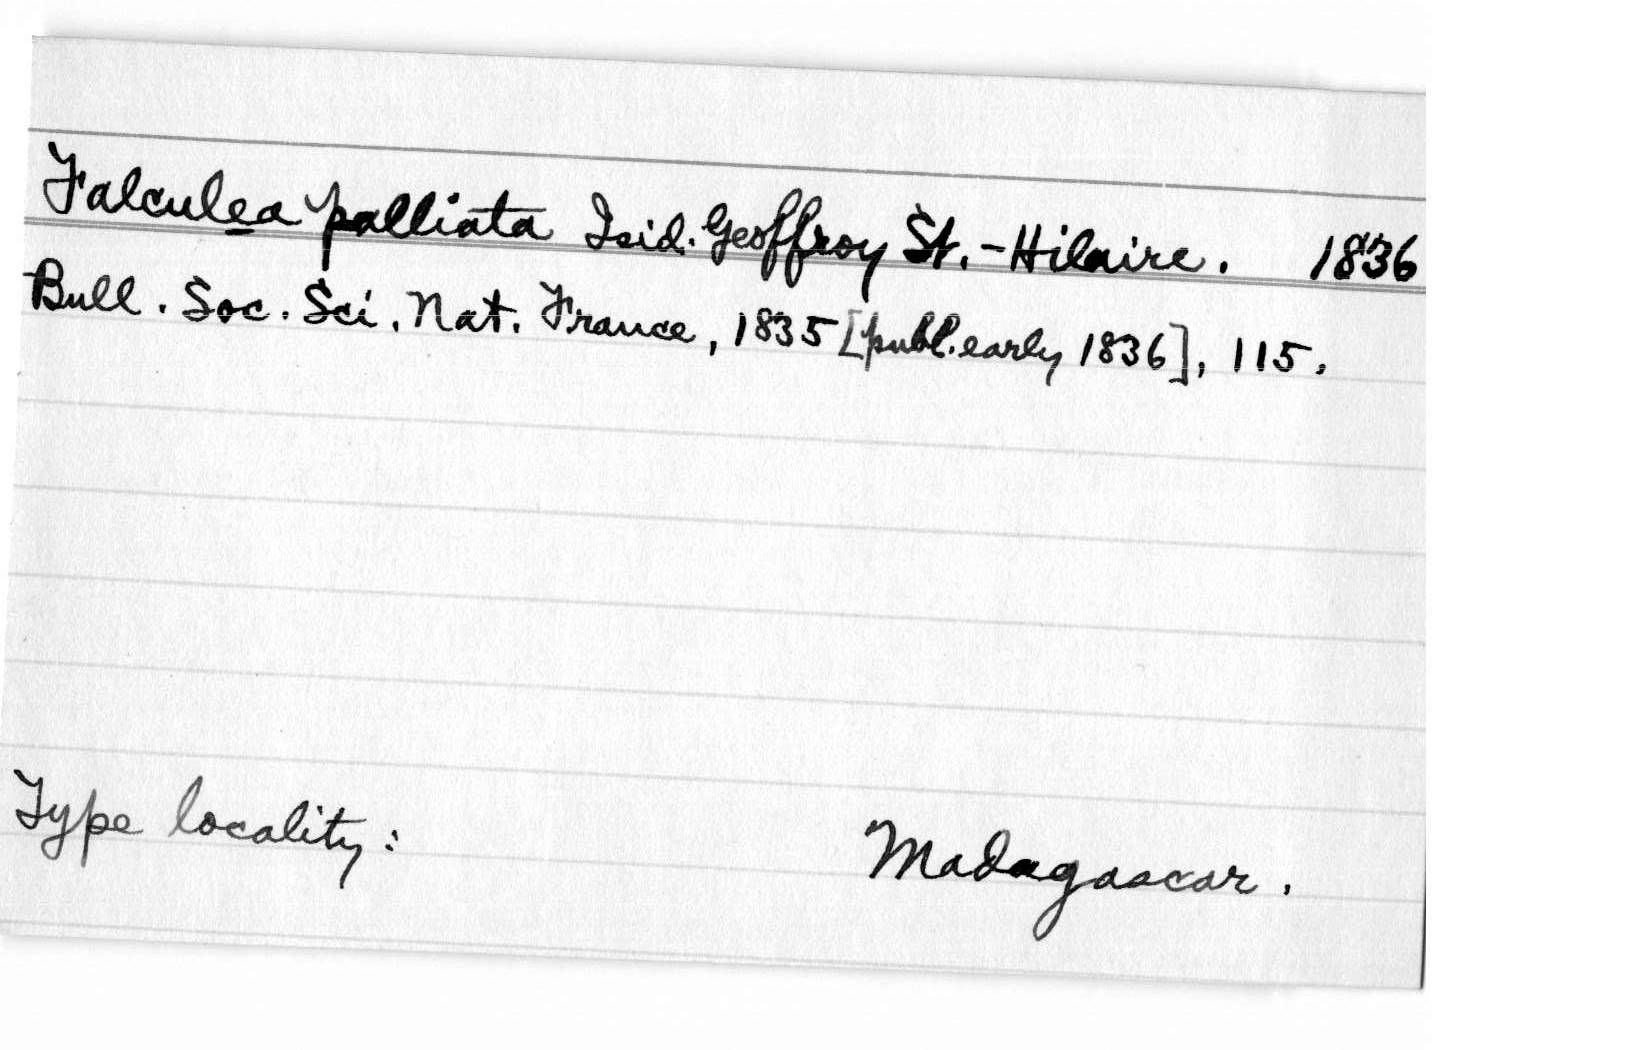 Falculea palliata Isid. Geoffroy St.-Hilaire. 1836
Bull. Soc. Sci. Nat. France, 1835 [publ. early 1836], 115.
Type locality: Madagascar.